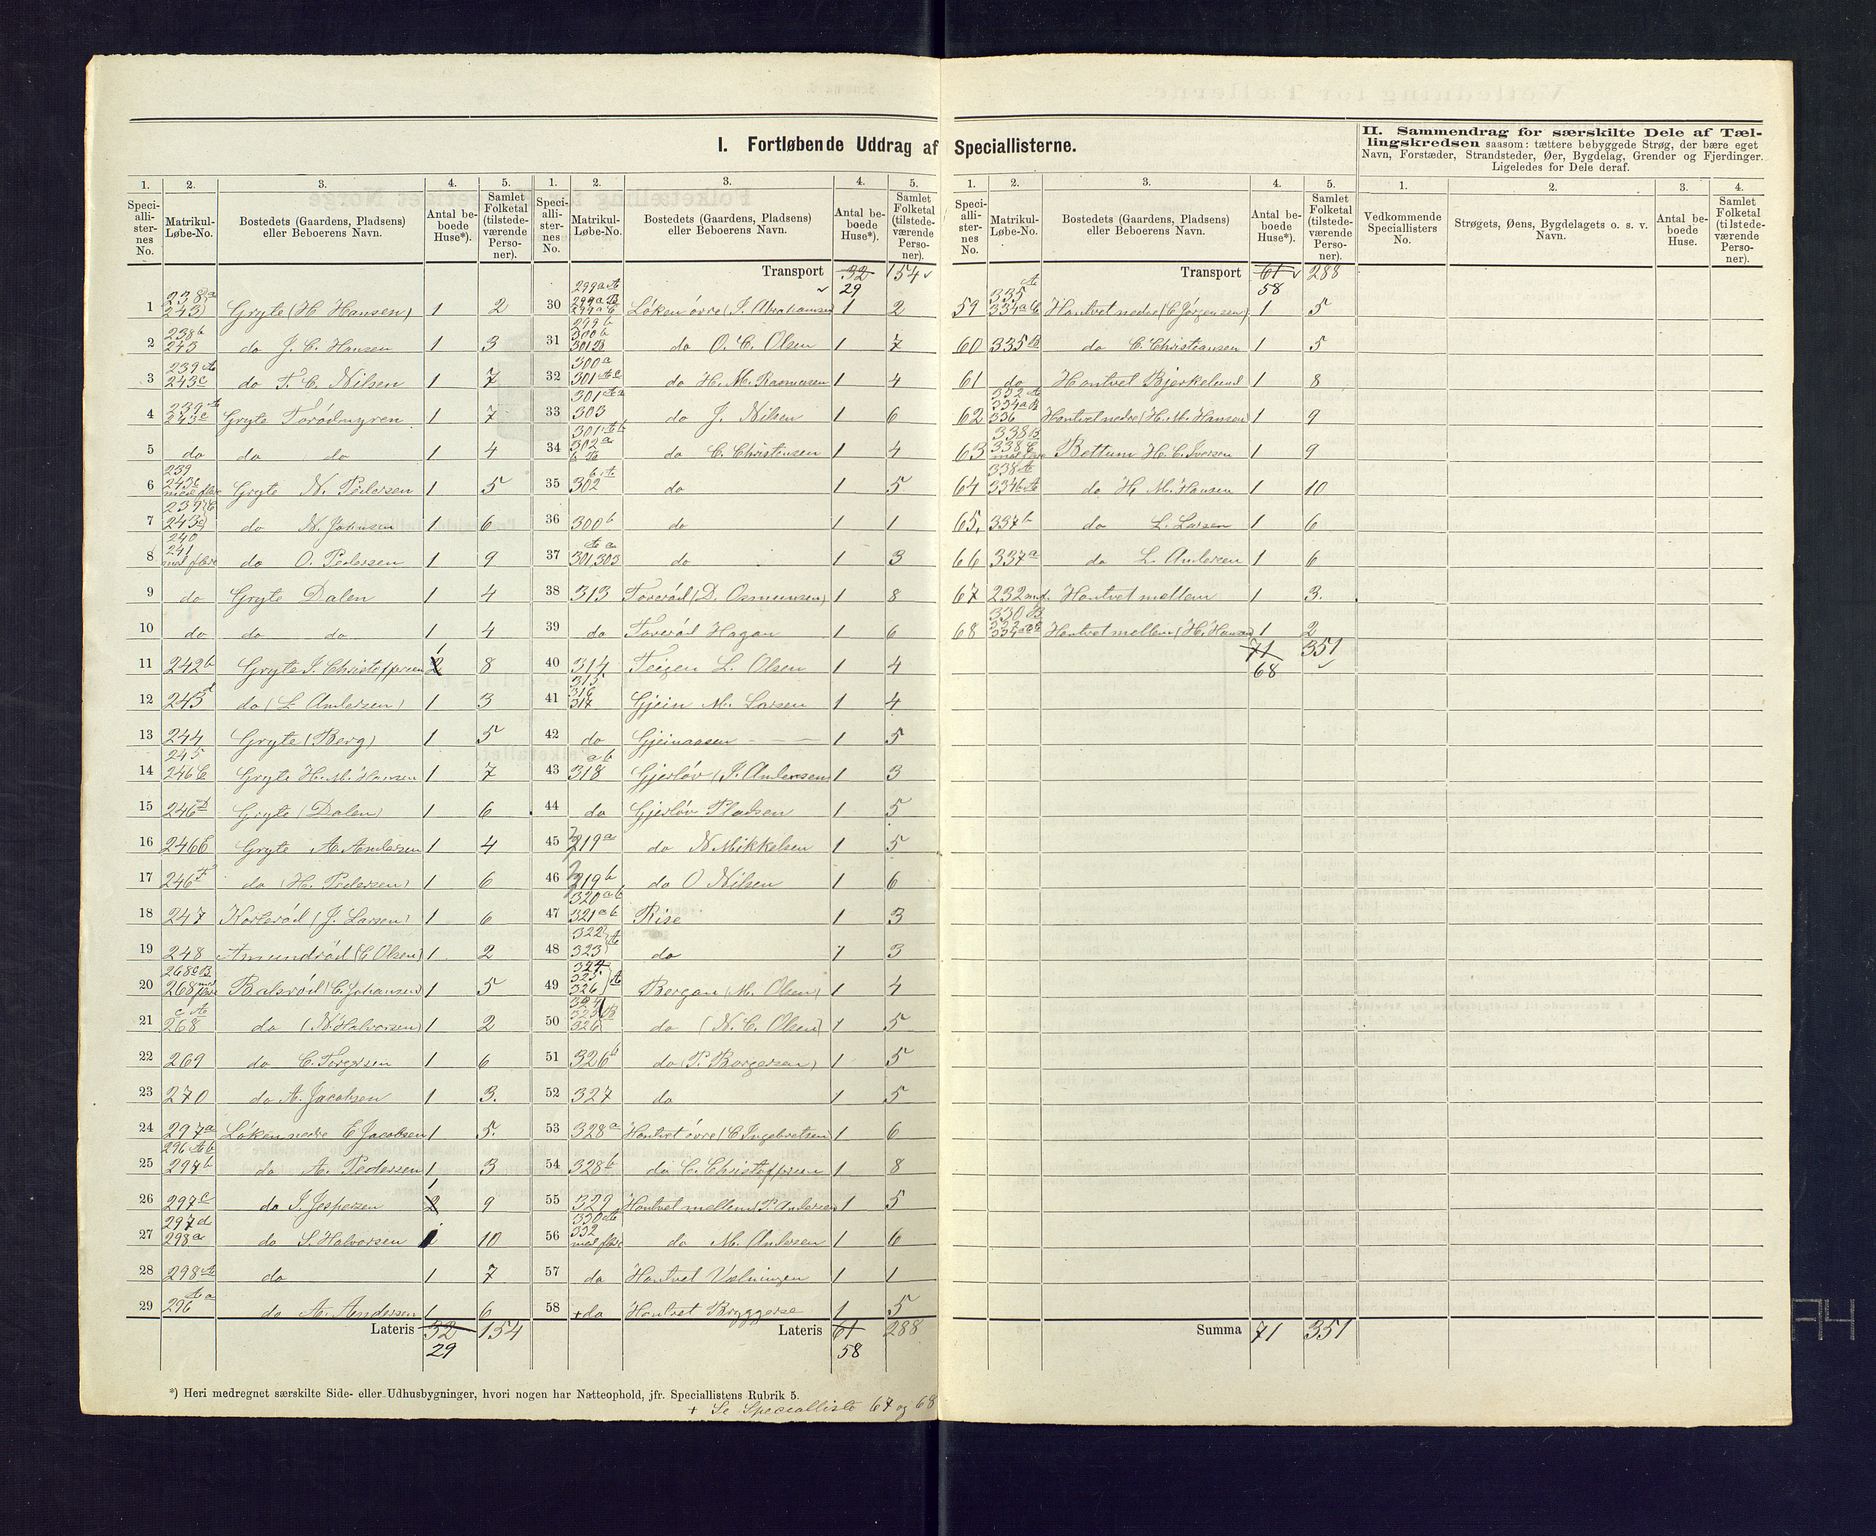 I. Fortløbende Uddrag af Speciallisterne.
II. Sammendrag for særskilte Dele af Tæl-
lingskredsen saasom: tættere bebyggede Strøg, der bære eget
Navn, Forstæder, Strandsteder, Øer, Bygdelag, Grender og Fjerdinger.
Ligeledes for Dele deraf.
1. 2. 3. 4. 5.
Speciallisternes No. Matrikul-Løbe-No. Bostedets (Gaardens, Pladsens) eller Beboerens Navn. Antal beboede Huse*). Samlet Folketal (tilstedeværende Personer).
1 238a 243 Gryte (H. Hansen) 1 2
2 238b 243 do J. C. Hansen 1 3
3 239 A 243c do T. C. Nilsen 1 7
4 239 A 243c Gryte Torødmyren 1 7
5 do do do 1 4
6 239 243c med flere Gryte N. Pedersen 1 5
7 239 243 do N. Johnsen 1 6
8 240 241 med flere do O. Pedersen 1 9
9 do Gryte Dalen 1 4
10 do do do 1 4
11 242b Gryte J. Christoffersen 2 1 8
12 243d do (L Andersen) 1 3
13 244 Gryte (Berg) 1 5
14 245 246 C Gryte H. M. Hansen 1 7
15 246 D Gryte (Dalen) 1 6
16 246 Gryte A. Andersen 1 4
17 246 F do (H. Pedersen) 1 6
18 247 Korterød (J. Larsen) 1 6
19 248 Amundrød (C Olsen) 1 2
20 268 c B 268 med flere Balsrød (C. Johansen) 1 5
21 268 c A do (N. Halvorsen) 1 2
22 269 do C. Torgersen 1 6
23 270 do A. Jacobsen 1 3.
24 297a Løken nedre E Jacobsen 1 5.
25 296 A b 297b do A. Pedersen 1 3
26 297c do J. Jespersen 2 1 9
27 297d 298a do S. Halvorsen 1 10
28 298 A do 1 7
29 296 A a do A. Andersen 1 6
Lateris 32 29 154
1. 2. 3. 4. 5.
Speciallisternes No. Matrikul-Løbe-No. Bostedets (Gaardens, Pladsens) eller Beboerens Navn. Antal beboede Huse*). Samlet Folketal (tilstedeværende Personer).
Transport 32 29 154
30 299a A 299a B 299a C Løken øvre (J. Abrahamsen 1 2
31 299b 300b 301 B do O. C. Olsen 1 7
32 300a 301 A c do H. M. Rasmusen 1 4
33 301 A a 303 do J. Nilsen 1 6
34 301 A b 302a do C. Christensen 1 4
35 302 b A do 1 5
36 300b do 1 1
37 301 303 do 1 3
38 313 Toverød (D. Osmundsen) 1 8
39 do Toverød Hagan 1 6
40 314 Teigen L. Olsen 1 4
41 315 316 317 Gjein M. Larsen 1 4
42 do Gjeinaasen 1 5
43 318 ab Gjerløv (J. Andersen) 1 3
44 do Gjerløv Pladsen 1 5
45 319a do N. Mikkelsen 1 5
46 319b do O Nilsen 1 6
47 320ab 321ab Rise 1 3
48 322 323 A do 1 3
49 324 325 326 A Bergan (M. Olsen) 1 4
50 324 325 326 B do (N. C. Olsen) 1 5
51 326b do (P. Borgersen) 1 5
52 327 do 1 5
53 328a Hontvet øvre (C Ingebretsen) 1 6
54 328b do C. Christoffersen 1 8
55 329 Hontvet mellem (P. Andersen 1 5
56 330 A 332 med flere do M. Andersen 1 6
57 do Hontvet Vælningen 1 1
58 + do Hontvet Bryggerse 1 5
Lateris 61 58 288
1. 2. 3. 4. 5.
Speciallisternes No. Matrikul-Løbe-No. Bostedets (Gaardens, Pladsens) eller Beboerens Navn. Antal beboede Huse*). Samlet Folketal (tilstedeværende Personer).
Transport 61 58 288
59 335 A 334a C Hontvet nedre (C Jørgensen) 1 5
60 335 B do C. Christiansen 1 5
61 do Hontvet Bjerkelund 1 8
62 332 A 334a B 336 Hontvet nedre (H. M. Hansen) 1 9
63 338 B 338 C med flere Bettum H. C. Iversen 1 9
64 338 A 334b A do H. M. Hansen 1 10
65. 337b do L. Larsen 1 6
66 337a do L. Andersen 1 6
67 232 md. Hontvet mellem 1 3.
68 330 B 334 Hontvet mellem (H. Hansen 1 2
71 68 351
Summa 71 351
1. 2. 3. 4.
Vedkommende Speciallisters No. Strøgets, Øens, Bygdelagets o. s. v. Navn. Antal beboede Huse. Samlet Folketal (tilstedeværende Personer).
*) Heri medregnet særskilte Side- eller Udhusbygninger, hvori nogen har Natteophold, jfr. Speciallistens Rubrik 5.
+ Se Specialliste 67 og 68